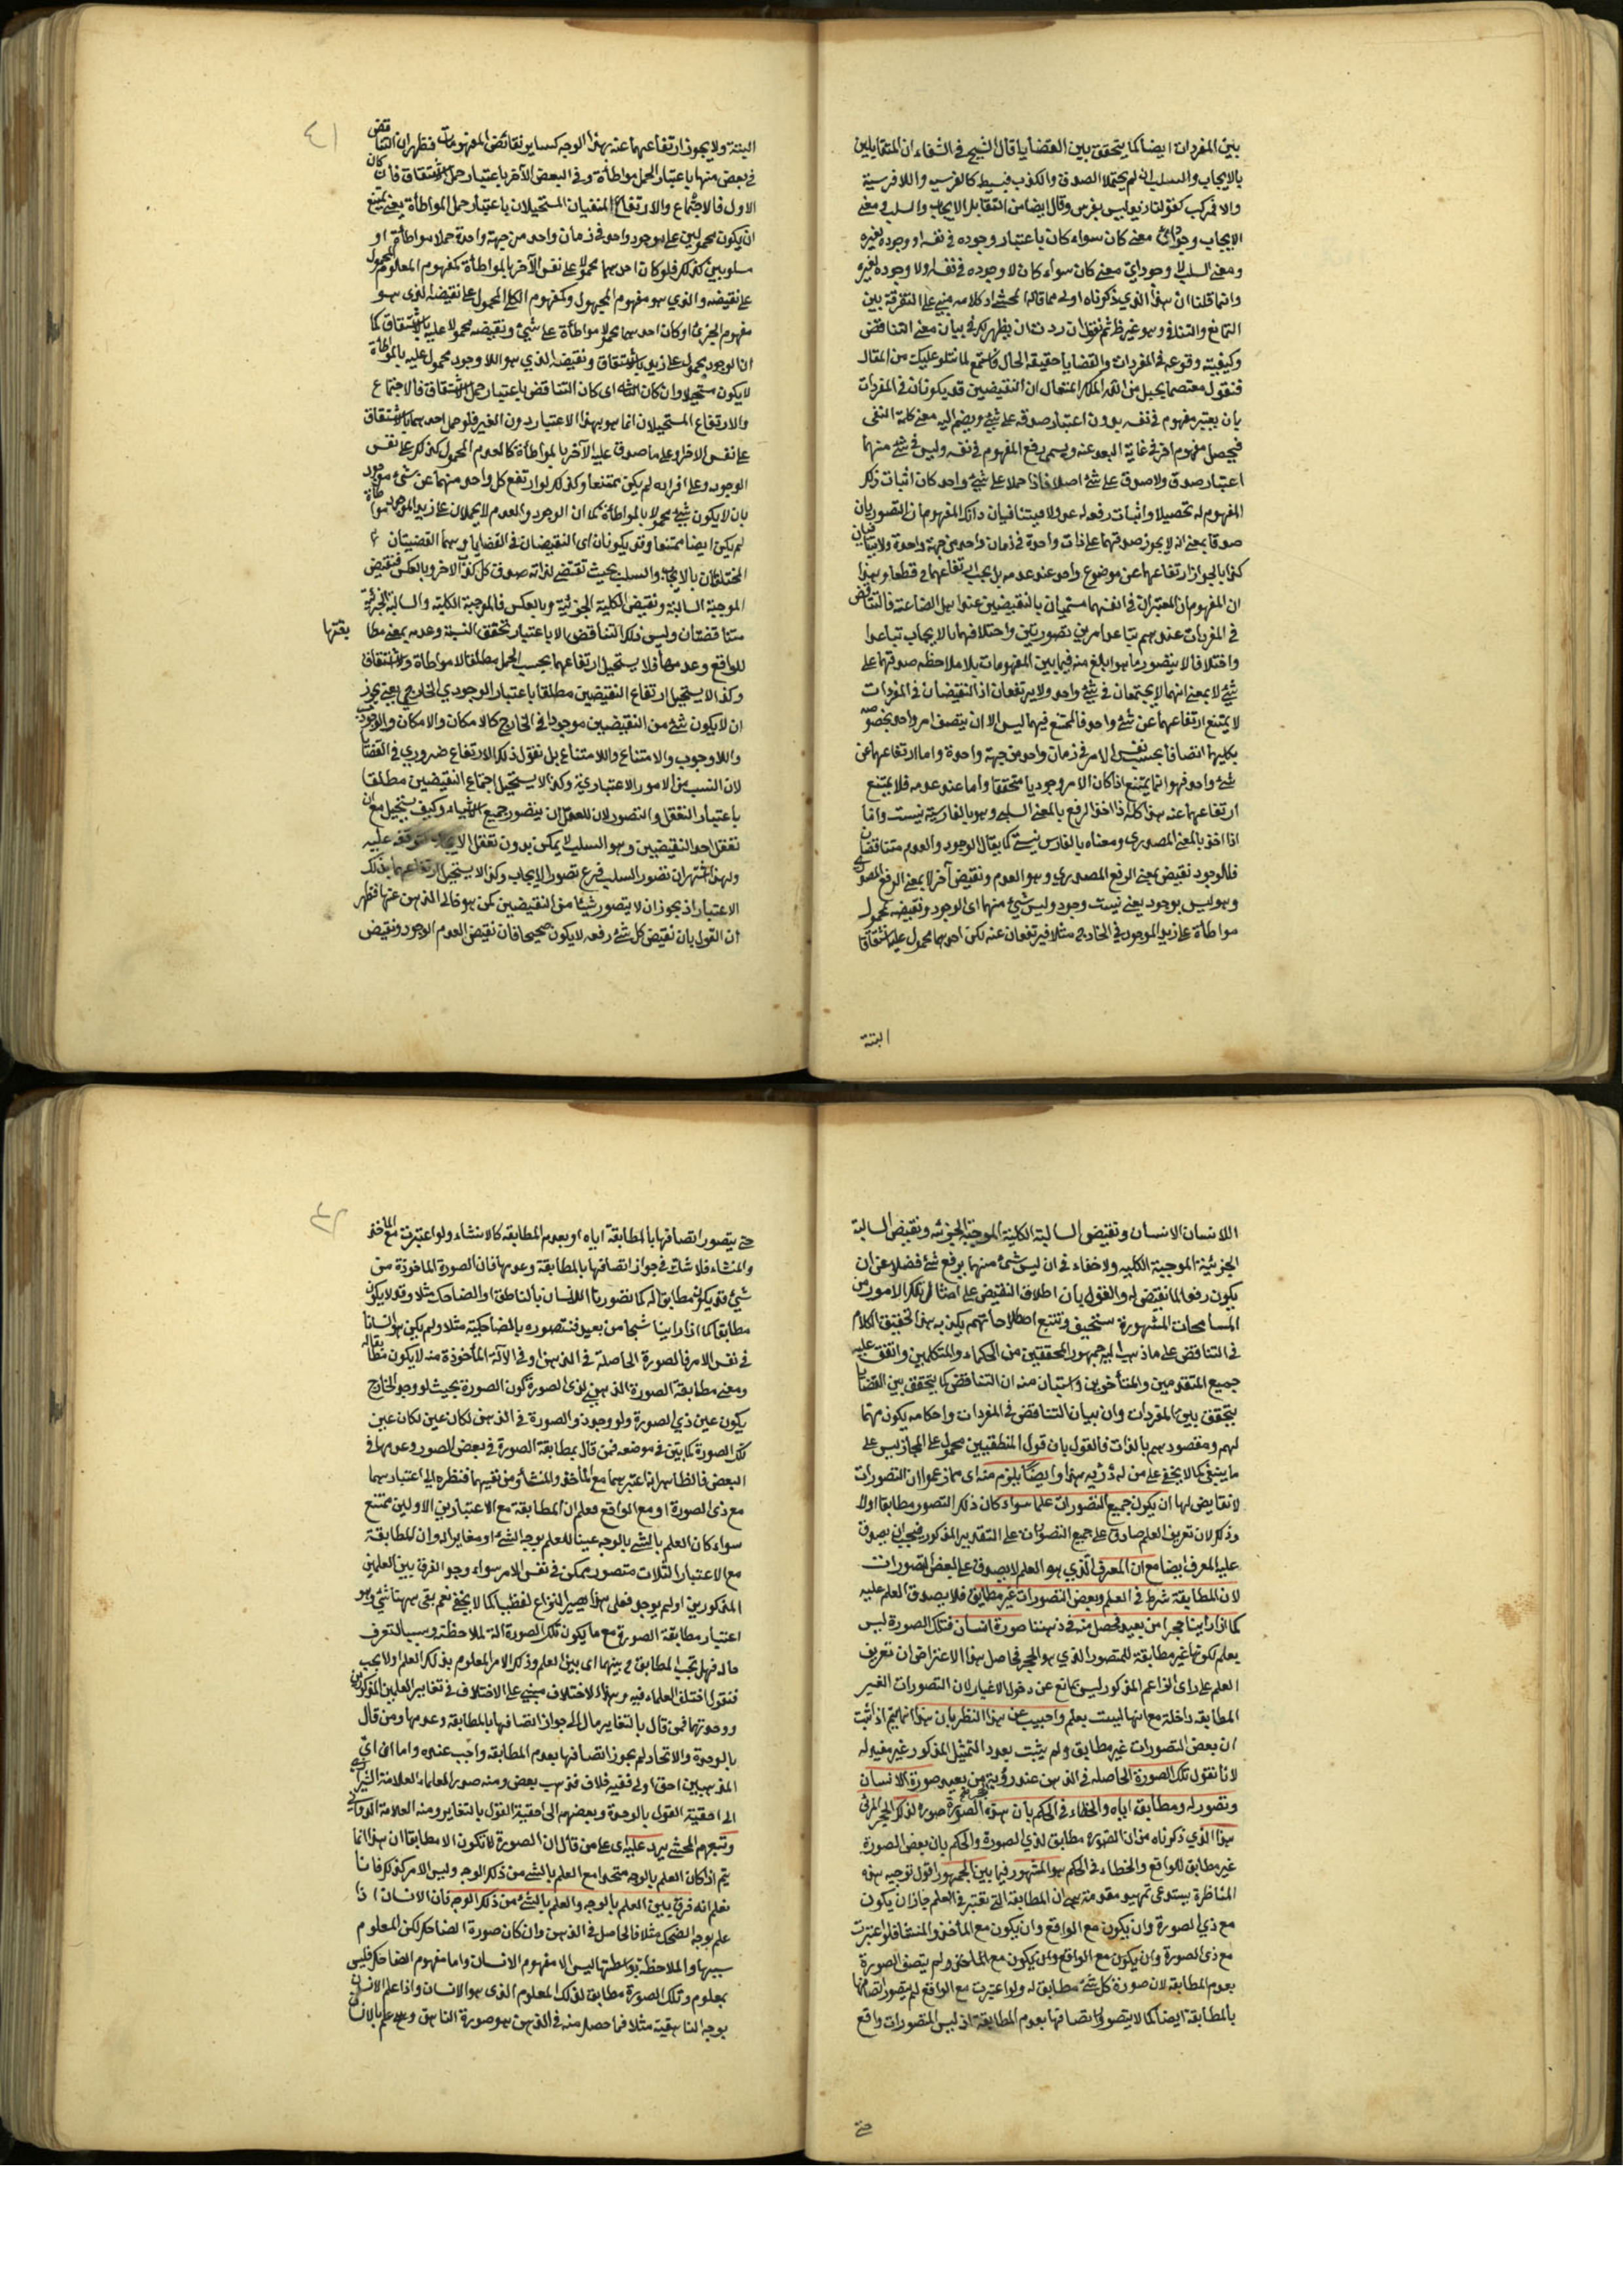 بين المفردات ايضا كما يتحقق بين القضايا قال الشيخ في الشفاء ان المتقابلين
بالايجاب والسلب ان لم يحتملا الصدق والكذب فبسيط كالفرسية واللافرسية
والا فمركب كقولنا زيد ليس بفرس وقال ايضا من التقابل الايجاب والسلب ومعنى
الايجاب وجود اي معنى كان سواء كان باعتبار وجوده في نفسه او وجوده لغيره
ومعنى السلب لا وجود اي معنى كان سواء كان لا وجوده في نفسه او لا وجوده لغيره
وانما قلنا ان هذا الذي ذكرناه اولى مما قاله المحشي اذ كلامه مبني على التفرقة بين
التمانع والتنافي وهو غير ظ ثم نقول ان ردت ان يظهر لك في بيان معنى التناقض
وكيفية وقوعه في المفردات والقضايا حقيقة الحال فاستمع لما نتلو عليك من المقال
فنقول معتصما بحبل من الله الملك المتعال ان النقيضين قد يكونان في المفردات
بان يعتبر مفهوم في نفسه بدون اعتبار صدقه على شيء ويضم اليه معنى كلمة النفي
فيحصل مفهوم اخر في غاية البعد عنه ويسمى رفع المفهوم في نفسه وليس في شيء منهما
اعتبار صدق ولا صدق على شيء اصلا فاذا حملا على شيء واحد كان اثبات ذلك
المفهوم له تحصيلا واثبات رفعه له عدولا فيتنافيان ذانك المفهومان التصوريان
صدقا بمعنى انه لا يجوز صدقهما على ذات واحدة في زمان واحد من جهة واحدة ولا يتنافيان
كذبا لجواز ارتفاعهما عن موضوع واحد عند عدمه بل يجب ارتفاعهما قطعا وبهذا
ان المفهومان المعتبران في انفسهما مسميان بالنقيضين عند اهل الصناعة فالتناقض
في المفردات عندهم تباعد امرين تصوريين واختلافهما بالايجاب تباعدا
واختلافا لا يتصور ما هو ابلغ منه فيما بين المفهومات بلا ملاحظة صدقهما على
شيء لا بمعنى انهما لا يجتمعان في شيء واحد ولا يرتفعان اذ النقيضان في المفردات
لا يمتنع ارتفاعهما عن شيء واحد فالممتنع فيهما ليس الا ان يتصف امر واحد بخصوصه
بكليهما اتصافا بحسب نفس الامر في زمان واحد من جهة واحدة واما ارتفاعهما عن
شيء واحد فهو انما يمتنع اذا كان الامر وجوديا متحققا واما عند عدمه فلا يمتنع
ارتفاعهما عنه هذا كله اذا اخذ الرفع بالمعنى السلبي وهو بالفارسية نيست واما
اذا اخذ بالمعنى المصدري ومعناه بالفارس نيستي كما يقال الوجود والعدم متناقضان
فللوجود نقيض بمعنى الرفع المصدري وهو العدم ونقيض آخر لا بمعنى الرفع المصدري
وهو ليس بوجود يعني نيست وجود وليس شيء منهما اي الوجود ونقيضه محمولا
مواطأة على زيد الموجود في الخارج مثلا فيرتفعان عنه لكن احدهما محمول عليه اشتقاقا
البتة
٤١
البتة ولا يجوز ارتفاعهما عنه بهذا الوجه كسايرنقائض المفهومات فظهر ان التناقض
في بعض منها باعتبار الحمل مواطأة وفي البعض الآخر باعتبار حمل الاشتقاق فان كان
الاول فالاجتماع والارتفاع المنفيان المستحيلان باعتبار حمل المواطأة يعني يمتنع
ان يكون محمولين على موجود واحد في زمان واحد من جهة واحدة حملا مواطأة او
مسلوبين كذلك فلو كان احدهما محمولا على نفس الآخر بالمواطأة كمفهوم المعلوم المحمول
على نقيضه والذي هو مفهوم المجهول وكمفهوم الكلي المحمول على نقيضه الذي هو
مفهوم الجزئي او كان احدهما محمولا مواطأة على شيء ونقيضه محمولا عليه بالاشتقاق كما
ان الوجود محمول على زيد بالاشتقاق ونقيضه الذي هو اللاوجود محمول عليه بالمواطأة
لا يكون مستحيلا وان كان الثاني اي كان التناقض باعتبار حمل الاشتقاق فالاجتماع
والارتفاع المستحيلان انما هو بهذا الاعتبار دون الغير فلو حمل احدهما بالاشتقاق
على نفس الاخر وعلى ما صدق عليه الآخر بالمواطأة كالعدم المحمول كذلك على نفس
الوجود وعلى افراده لم يكن ممتنعا وكذلك لو ارتفع كل واحد منهما عن شيء موجود
بان لا يكون شيء محمولا بالمواطأة كما ان الوجود والعدم لا يحملان على زيد الموجود مواطأة
لم يكن ايضا ممتنعا وقد يكونان اي النقيضان في القضايا وهما القضيتان
المختلفتان بالايجاب والسلب بحيث تقتضي لذاته صدق كل كذب الاخر وبالعكس فنقيض
الموجبة السالبة ونقيض الكلية الجزئية وبالعكس فالموجبة الكلية والسالبة الجزئية
متناقضتان وليس ذلك التناقض الا باعتبار تحقق النسبة وعدمه بمعنى مطا بقتها
للواقع وعدمها فلا يستحيل ارتفاعهما بحسب الحمل مطلقا لا مواطاة ولا اشتقاق
وكذا لا يستحيل ارتفاع النقيضين مطلقا باعتبار الوجود الخارجي يعني يجوز
ان لا يكون شيء من النقيضين موجودا في الخارج كالامكان واللاامكان والوجوب
واللاوجوب والامتناع واللاامتناع بل نقول ذلك الارتفاع ضروري في القضايا
لان النسب من الامور الاعتبارية وكذا لا يستحيل اجتماع النقيضين مطلقا
باعتبار التعقل والتصور لان للعقل ان يتصور جميع الاشياء وكيف يستحيل مع ان
تعقل احد النقيضين وهو السلب لا يمكن بدون تعقل الايجاب لتوقفه عليه
ولهذا اشتهر ان تصور السلب فرع تصور الايجاب وكذا لا يستحيل ارتفاعهما بذلك
الاعتبار اذ يجوز ان لا يتصور شيئا من النقيضين كمن هو خالي الذهن عنها فظهر
ان القول بان نقيض كل شيء رفعه لا يكون صحيحا فان نقيض العدم الوجود ونقيض
اللاانسان الانسان ونقيض السالبة الكلية الموجبة الجزئية ونقيض السالبة
الجزئية الموجبة الكلية ولا خفاء في ان ليس شيء منهما برفع شيء فضلا عن ان
يكون رفعا لما نقيض له والقول بان اطلاق النقيض على امثال تلك الامور من
المسامحات المشهورة سخيف وتتبع اصطلاحاتهم يكذبه هذا تحقيق الكلام
في التناقض على ما ذهب اليه جمهور المحققين من الحكماء والمتكلمين واتفق عليه
جميع المتقدمين والمتأخرين واستبان منه ان التناقض كما يتحقق بين القضايا
يتحقق بين المفردات وان بيان التناقض في المفردات واحكامه يكون مهما
لهم ومقصودهم بالذات فالقول بان قول المنطقيين محمول على المجاز ليس على
ما ينبغي كما لا يخفى على من له درية هذا وايضا يلزم منه اي مما زعموا ان التصورات
لا نقايض لها ان يكون جميع التصورات علما سواء كان ذلك التصور مطابقا او لا
وذلك لان تعريف العلم صادق على جميع التصورات على التقدير المذكور فيجب ان يصدق
عليه المعرف ايضا مع ان المعرف الذي هو العلم لا يصدق على بعض التصورات
لان المطابقة شرط في العلم وبعض التصورات غير مطابق فلا يصدق العلم عليه
كما اذا راينا حجرا من بعيد فحصل منه في ذهننا صورة انسان فتلك الصورة ليس
بعلم لكونها غير مطابقة للمتصور الذي هو الحجر فحاصل هذا الاعتراض ان تعريف
العلم على راى الزاعم المذكور ليس بمانع عن دخول الاغيار لان التصورات الغير
المطابقة داخلة مع انها ليست بعلم واجيب عن هذا النظر بان هذا انما يتم اذا ثبت
ان بعض التصورات غير مطابق ولم يثبت بعد والتمثيل المذكور غير مفيد له
لانا نقول تلك الصورة الحاصلة في الذهن عند رؤية حجر من بعيد صورة الانسان
وتصور له ومطابق اياه والخطاء في الحكم بان هذه الصورة صورة لذلك الحجر المرئي
هذا الذي ذكرناه من ان الصورة مطابق لذي الصورة والحكم بان بعض الصورة
غير مطابق للواقع والخطاء في الحكم هو المشهور فيما بين الجمهور اقول توجيه هذه
المناظرة يستدعي تمهيد مقدمة هي ان المطابقة التي تعتبر في العلم جاز ان يكون
مع ذي الصورة وان يكون مع الواقع وان يكون مع المأخذ والمنشا فلو اعتبرت
مع ذي الصورة وان يكون مع الواقع وان يكون مع المأخذ ولم يتصف الصورة
بعدم المطابقة لان صورة كل شيء مطابق له ولو اعتبرت مع الواقع لم يتصور اتصافها
بالمطابقة ايضا كما لا يتصور اتصافها بعدم المطابقة اذ ليس للتصورات واقع
حتى
٤٢
حتى يتصور اتصافها بالمطابقة اياه او بعدم المطابقة كالانشاء ولو اعتبرت مع المأخذ
والمنشاء فلا شك في جواز اتصافها بالمطابقة وعدمها فان الصورة الماخوذة من
شيء قد يكون مطابقا له كما تصورنا الانسان بالناطق او الضاحك مثلا وقد لا يكون
مطابقا كما اذا راينا شبحا من بعيد فنتصوره بالضاحكية مثلا ولم يكن هو انسانا
في نفس الامر فالصورة الحاصلة في الذهن او في الآلة المأخوذة منه لا يكون مطابقا له
ومعنى مطابقة الصورة الذهني لذي الصورة كون الصورة بحيث لو وجد الخارج
يكون عين ذي الصورة ولو وجد ذو الصورة في الذهن لكان عين لكان عين
تلك الصورة كما بين في موضعه فمن قال بمطابقة الصورة في بعض الصور وعدمها في
البعض فالظاهر انه اعتبرهما مع المأخذ والمنشأ ومن نفيهما فنظره الى اعتبارهما
مع ذي الصورة او مع الواقع فعلم ان المطابقة مع الاعتبارين الاولين ممتنع
سواء كان العلم بالشيء بالوجه عينا للعلم بوجه الشيء او مغايرا له وان المطابقة
مع الاعتبار الثالث متصور ممكن في نفس الامر سواء وجد الفرق بين العلمين
المذكورين او لم يوجد فعلى هذا يصير النزاع لفظيا كما لا يخفى نعم بقي ههنا شيء وهو
اعتبار مطابقة الصورة مع ما يكون تلك الصورة آلة لملاحظته وسببا لتعرف
حاله فهل تجب المطابقة بينهما اي بين العلم وذلك الامر المعلوم بذلك العلم ولا يجب
فنقول اختلف العلماء فيه وهذا الاختلاف مبني على الاختلاف في تغاير العلمين المذكورين
ووحدتهما فمن قال بالتغاير مال الى جواز اتصافها بالمطابقة وعدمها ومن قال
بالوحدة والاتحاد لم يجوز اتصافها بعدم المطابقة واجب عنده واما ان اي
المذهبين احق اولى ففيه خلاف فذهب بعض ومنه صدر العلماء العلامة الشيرازي
الى احقية القول بالوحدة وبعضهم الى احقية القول بالتغاير ومنه العلامة الدواني
وتبعهم المحشي يرد عليه اي على من قال ان الصورة لا تكون الا مطابقا ان هذا انما
يتم اذا كان العلم بالوجه متحدا مع العلم بالشيء من ذلك الوجه وليس الامر كذلك فانا
نعلم انه فرق بين العلم بالوجه والعلم بالشيء من ذلك الوجه فان الانسان اذا
علم بوجه الضحك مثلا فالحاصل في الذهن وان كان صورة الضاحك لكن المعلوم
بسببها والملاحظة بواسطتها ليس الا مفهوم الانسان واما مفهوم الضاحك فليس
بمعلوم وتلك الصورة مطابق لذلك المعلوم الذي هو الانسان واذا علم الانسان
بوجه الناهقية مثلا فما حصل منه في الذهن هو صورة الناهق وهو علم بالانسان